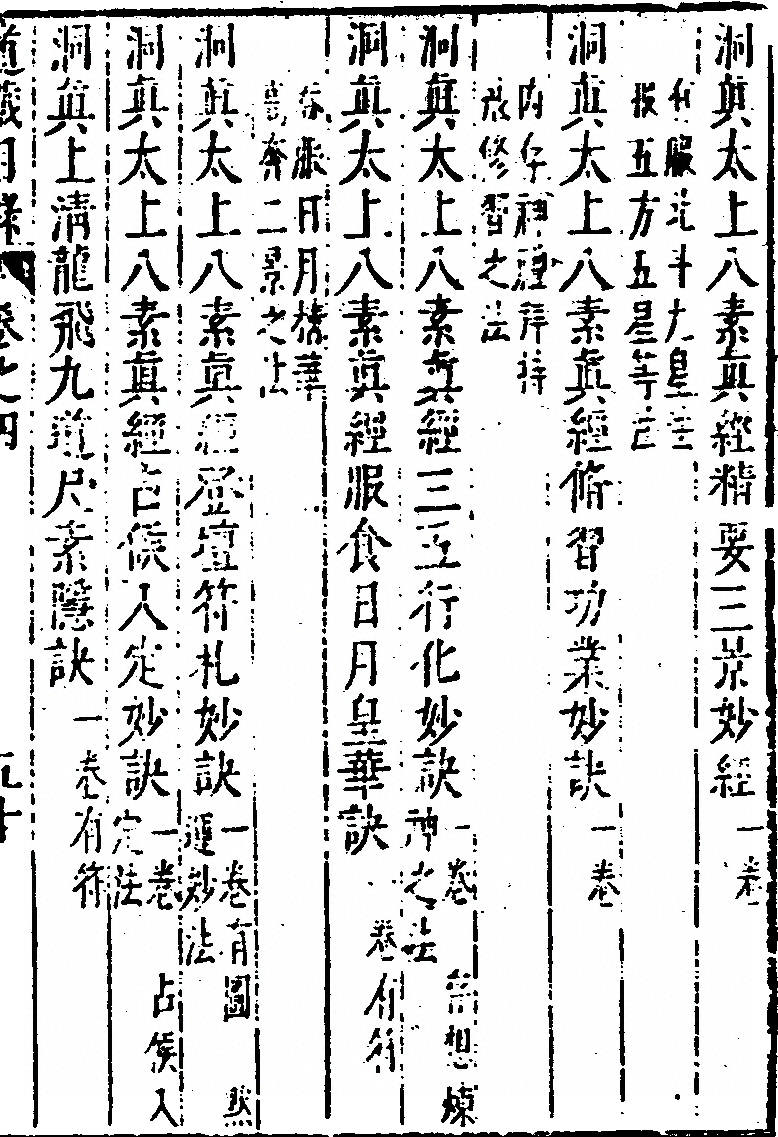 洞眞太上八素眞經精要三景妙經 一卷
服北斗九皇
按五方五星等法
洞眞太上八素眞經脩習功業妙訣 一卷
內存神禮拜
修習之法
洞眞太上八素眞經三五行化妙訣 一卷 言想煉
神之法
洞眞太上八素眞經服食日月皇華訣 卷有符
吞服日月精華
高奔二景之法
洞眞太上八素眞經登壇符札妙訣 一卷有圖 然
運妙法
洞眞太上八素眞經占候入定妙訣 一卷 占候入
定法
洞眞上清龍飛九道尺素隱訣 一卷有符
道藏目錄 卷之四 九十